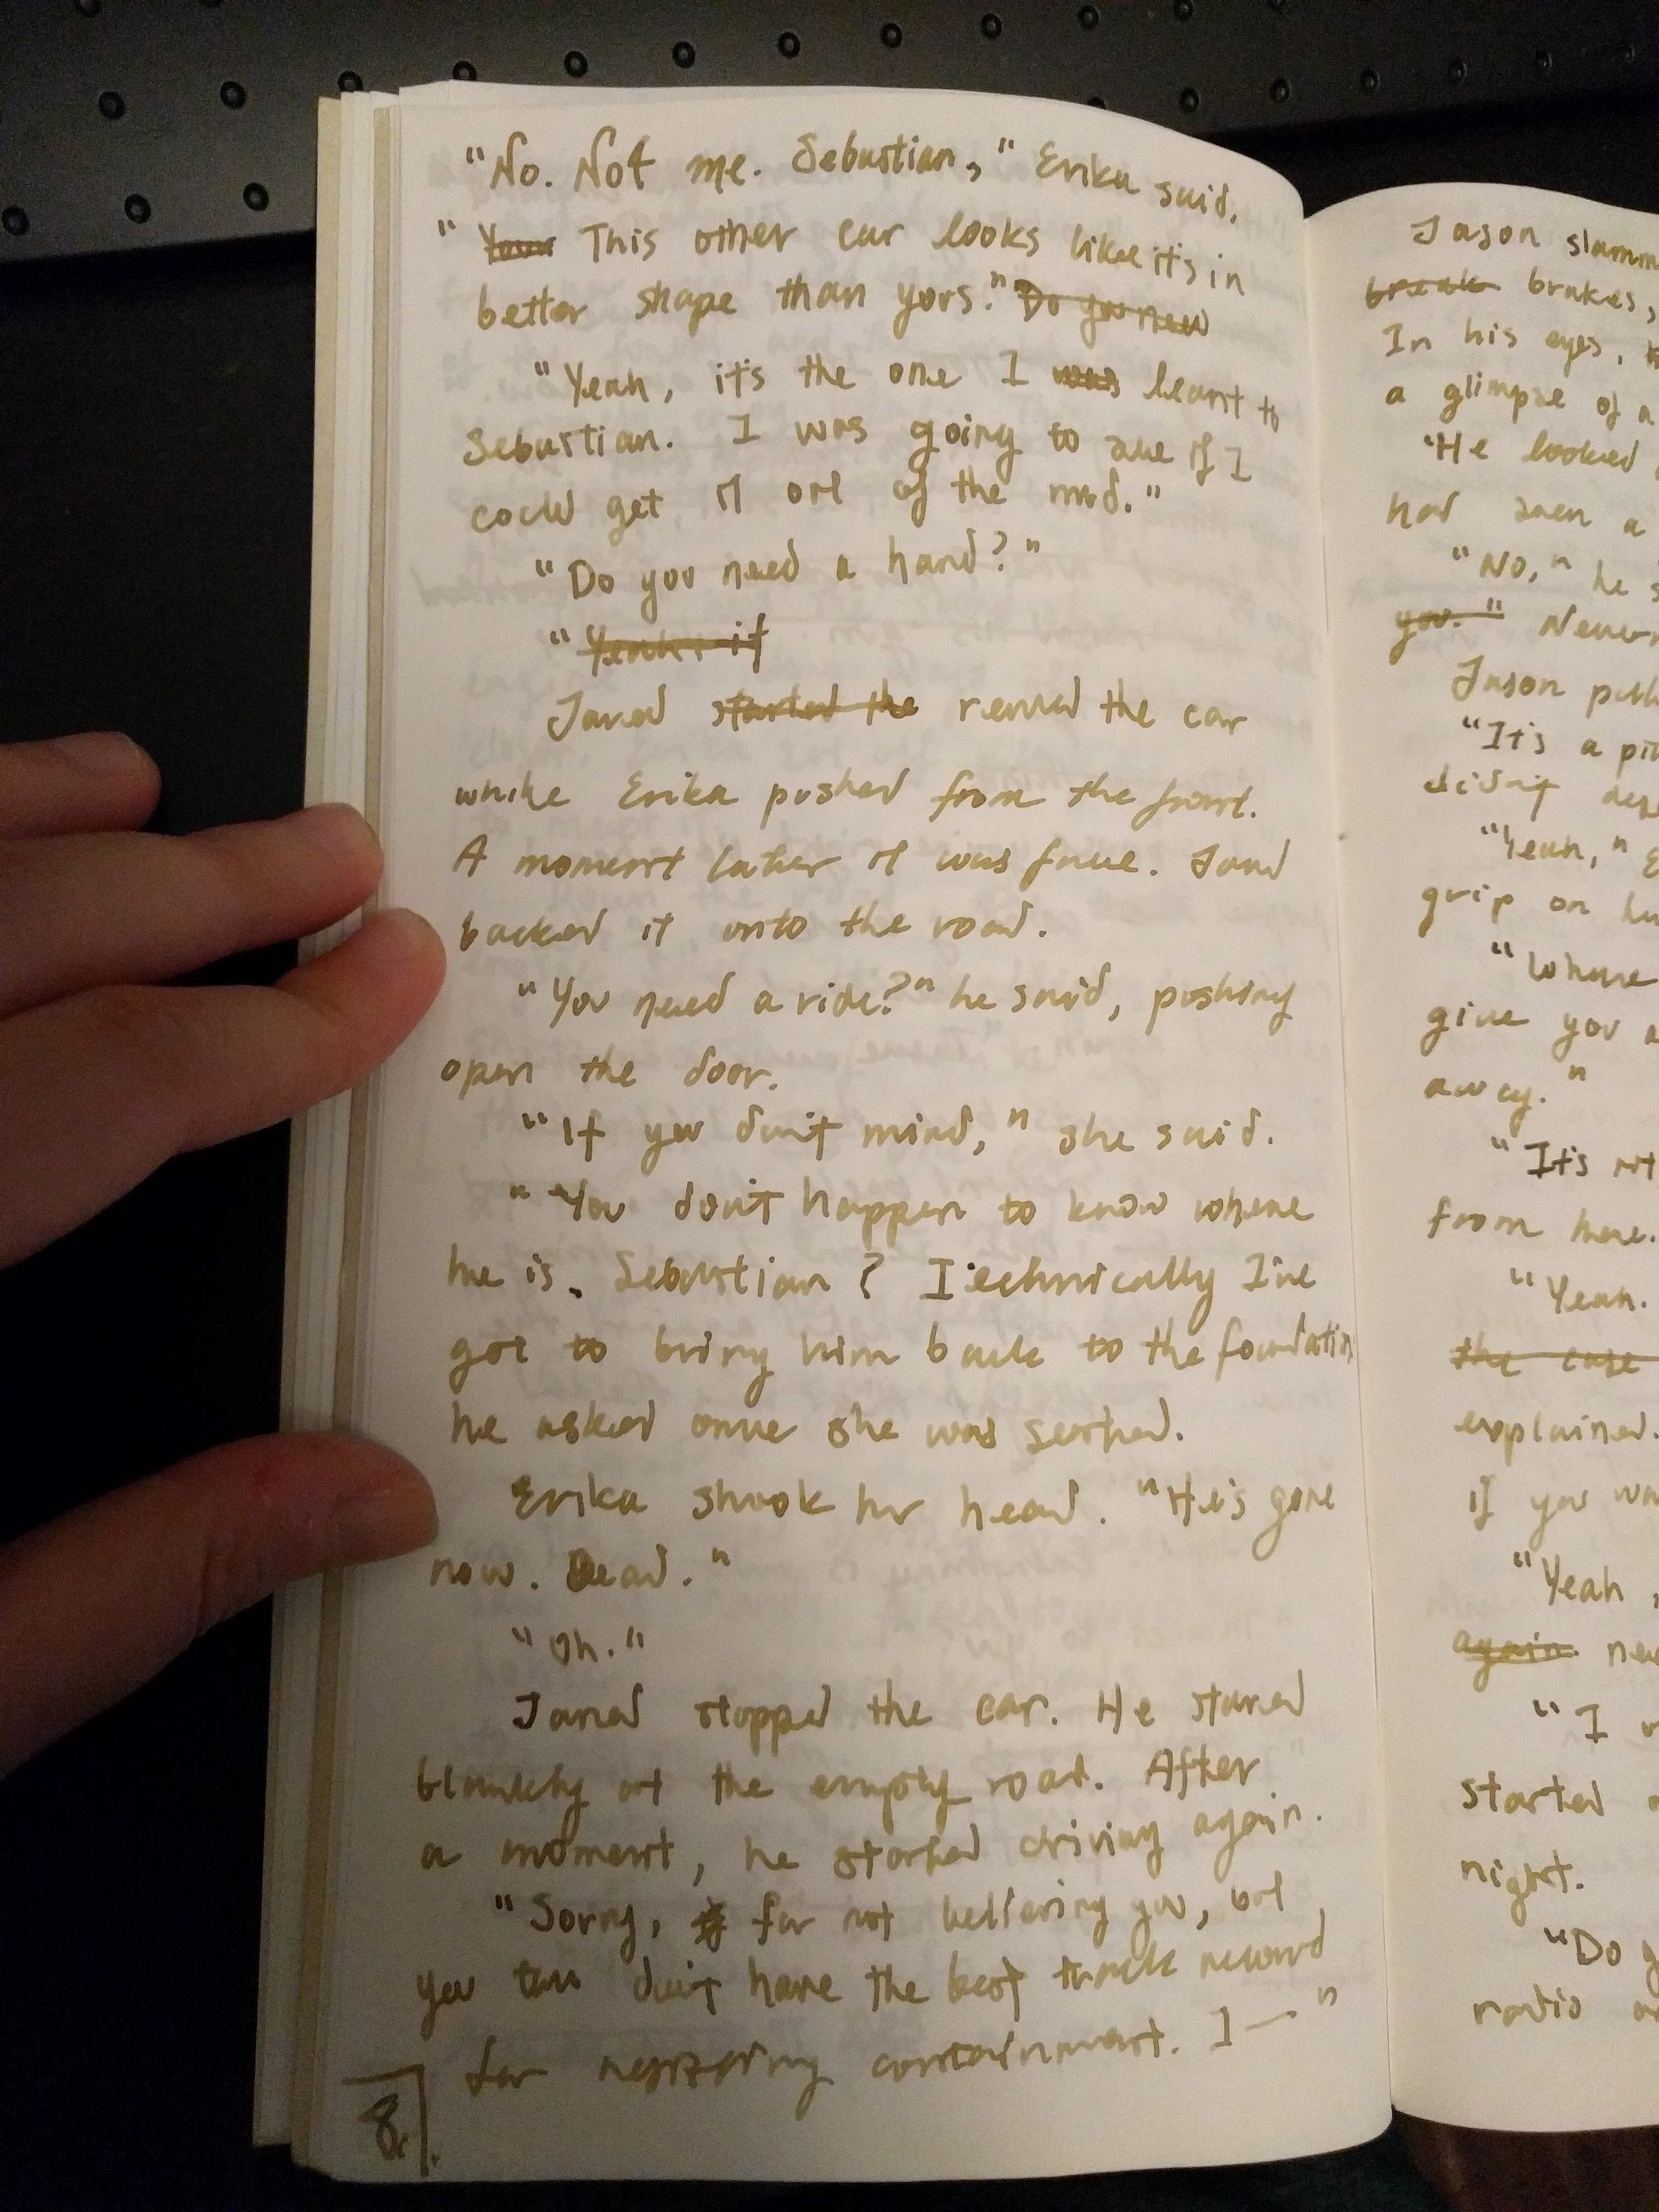 "No. Not me. Sebastian," Erika said.
" Your This other car looks like it's in
better shape than yors." Do you need
"Yeah, it's the one I was leant to
Sebastian. I was going to see if I
could get it out of the mud."
"Do you need a hand?"
"Yeah, if
Jared started the revved the car
while Erika pushed from the front.
A moment later it was free. Jared
backed it onto the road.
"You need a ride?" he said, pushing
open the door.
"If you don't mind," she said.
"You don't happen to know where
he is. Sebastian? I technically I've
got to bring him back to the foundation
he asked once she was seated.
Erika shook her head. "He's gone
now. Dead."
"Oh."
Jared stopped the car. He stared
blankly at the empty road. After
a moment, he started driving again.
"Sorry, for not believing you, but
you don't have the best track record
for containment. I—"
8
Jason slamm
break brakes,
In his eyes,
a glimpse of a
"He looked
had seen a
"No," he s
you." Never
Jason pull
"It's a pit
didn't dese
"Yeah," E
grip on he
"Where
give you a
away."
"It's not
from here.
"Yeah.
the case
explained.
if you wa
"Yeah,
again new
"I
started
night.
"Do y
radio or